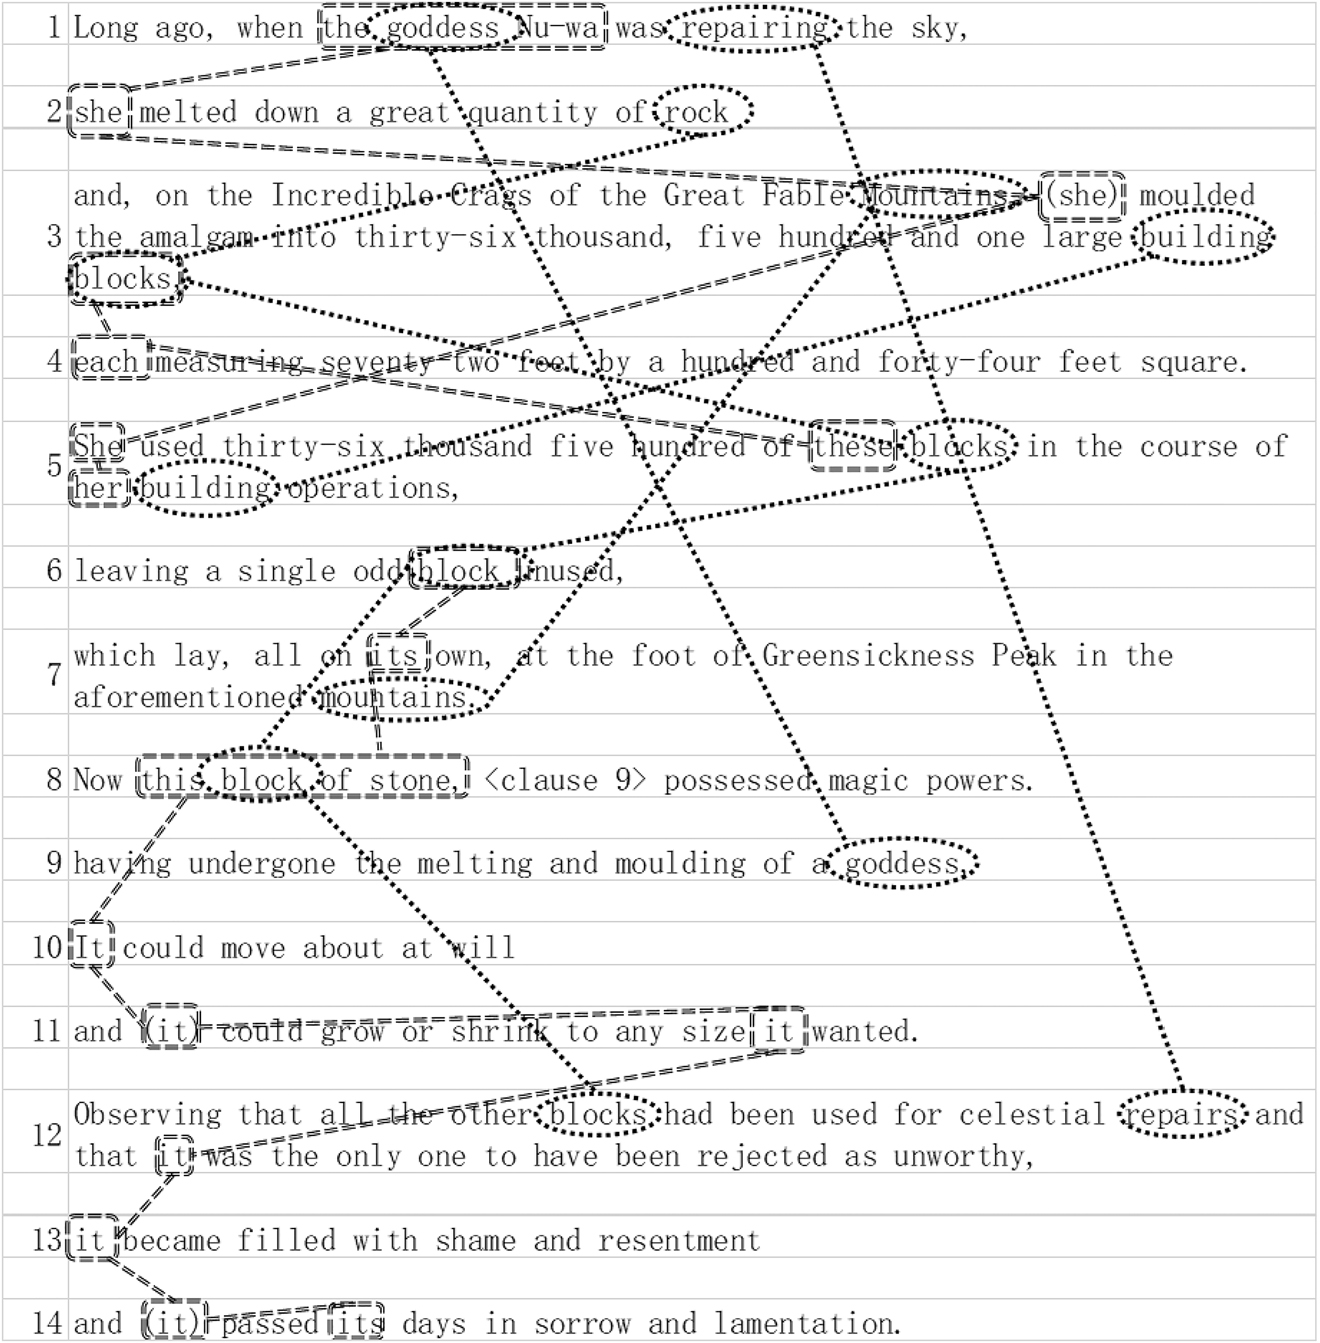 1 Long ago, when the goddess Nu-wa was repairing the sky,
2 she melted down a great quantity of rock
and, on the Incredible Crags of the Great Fable Mountains, (she) moulded
3 the amalgam into thirty-six thousand, five hundred and one large building
blocks,
4 each measuring seventy-two feet by a hundred and forty-four feet square.
She used thirty-six thousand five hundred of these blocks in the course of
5
her building operations,
6 leaving a single odd block unused,
which lay, all on its own, at the foot of Greensickness Peak in the
7
aforementioned mountains.
8 Now this block of stone, <clause 9> possessed magic powers.
9 having undergone the melting and moulding of a goddess,
10 It could move about at will
11 and (it) could grow or shrink to any size it wanted.
Observing that all the other blocks had been used for celestial repairs and
12
that it was the only one to have been rejected as unworthy,
13 it became filled with shame and resentment
14 and (it) passed its days in sorrow and lamentation.